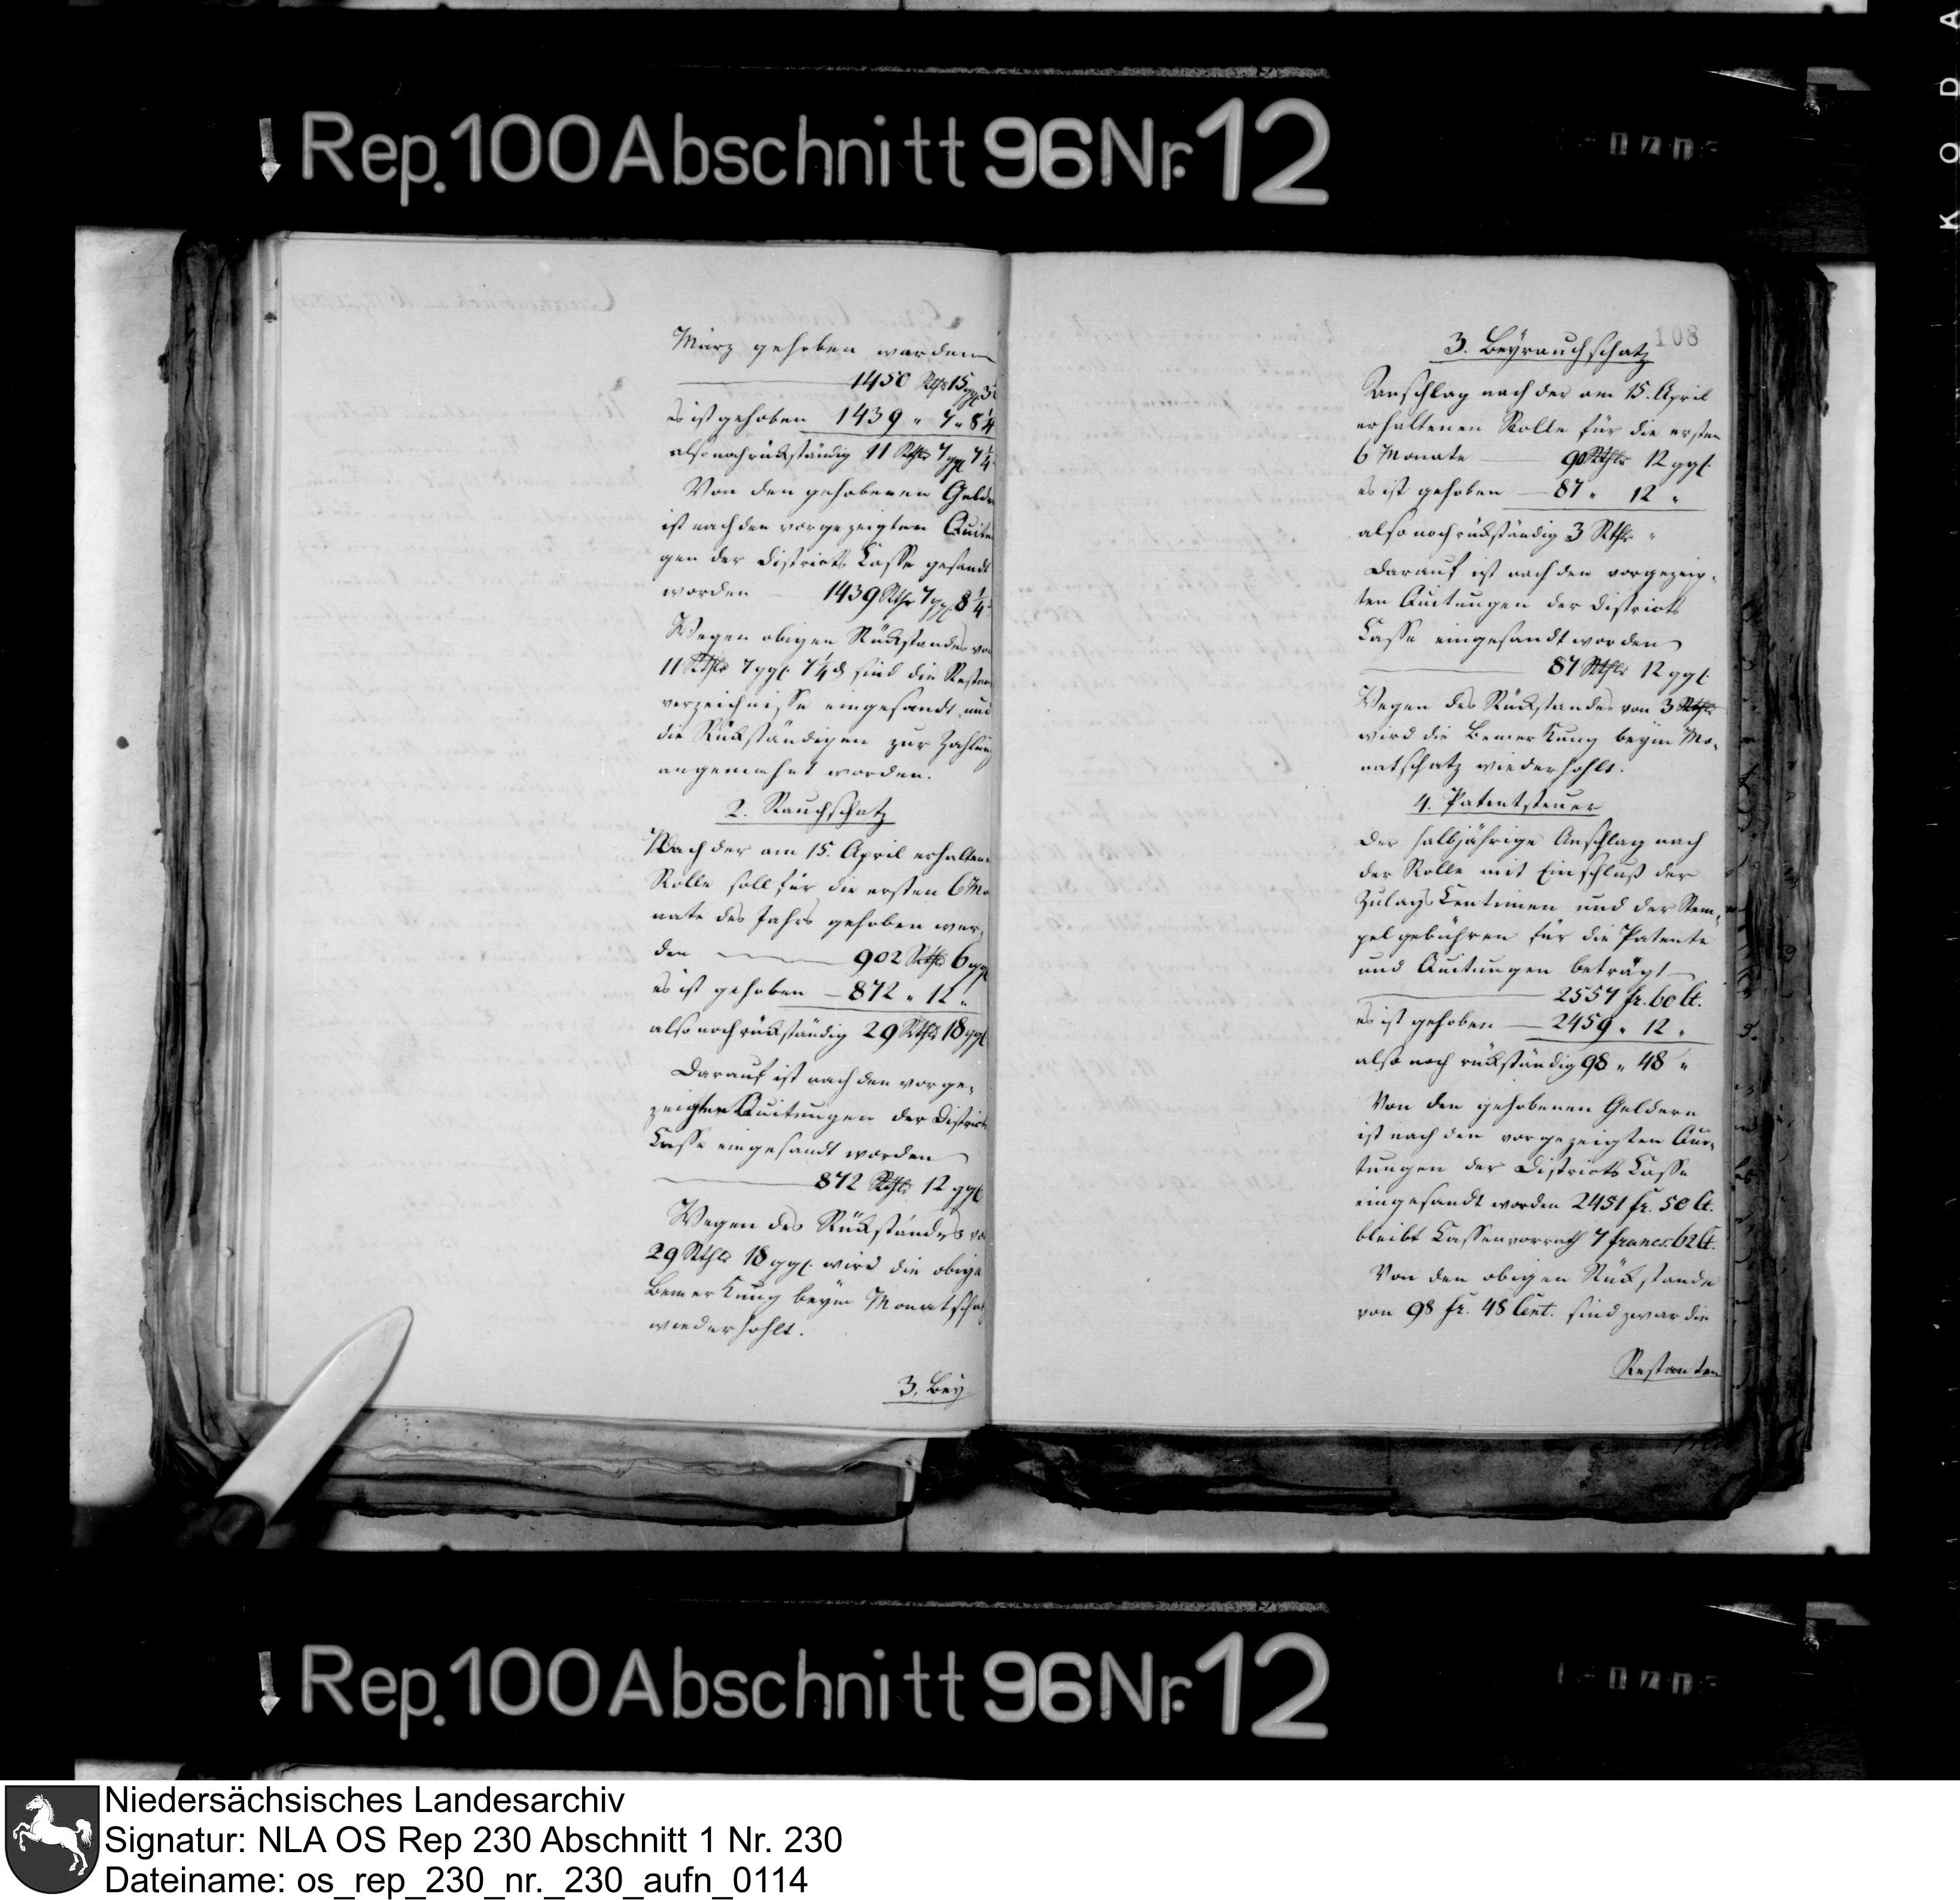 KODA
Rep. 100 Abschnitt 96 Nr. 12
März gehoben werden
1450 Rthlr 15 ggl 3½
es ist gehoben 1439 " 7 " 8¼
also noch rükständig 11 Rthlr 7 ggl 7¼
Von den gehobenen Gelder
ist nach den vorgezeigten Quitun
gen der Districts Casse gesandt
worden 1439 Rthlr 7 ggl 8¼
Wegen obigen Rükstandes von
11 Rthlr 7 ggl. 7¼ d sind die Restan
verzeichnisse eingesandt und
die Rükständigen zur Zahlung
angemahnt worden.
2. Rauchschatz
Nach der am 15. April erhaltene
Rolle soll für die ersten 6 Mo
nate des Jahrs gehoben wer,
den 902 Rthlr 6 ggl
es ist gehoben 872 " 12 "
also noch rükständig 29 Rthlr 18 ggl
Darauf ist nach den vorge,
zeigten Quitungen der District
Casse eingesandt worden
872 Rthlr 12 ggl
Wegen des Rükstandes vo
29 Rthlr 18 ggl. wird die obige
Bemerkung beym Monatschat
wiederhohlt.
3. Bey
108
3. Beyrauchschatz
Anschlag nach der am 15. April
erhaltenen Rolle für die ersten
6 Monate 90 Rthlr 12 ggl.
es ist gehoben 87 " 12 "
also noch rükständig 3 Rthlr "
Darauf ist nach den vorgezeig,
ten Quitungen der Districts
Casse eingesandt worden
87 Rthlr 12 ggl.
Wegen des Rükstandes von 3 Rthlr
wird die Bemerkung beym Mo,
natschatz wiederhohlt.
4. Patentsteuer
Der halbjährige Anschlag nach
der Rolle mit Einschluß der
Zulags Centimen und der Stem,
pelgebühren für die Patente
und Quitungen beträgt
2557 fr. 60 Ct.
es ist gehoben 2459 " 12 "
also noch rükständig 98 " 48 "
Von den gehobenen Geldern
ist nach den vorgezeigten Qui,
tungen der Districts Casse
eingesandt worden 2451 fr. 50 Ct.
bleibt Cassenvorrath 7 francs. 62 Ct.
Von den obigen Rükstande
von 98 fr. 48 Cent. sind zwar die
Restanten
Rep. 100 Abschnitt 96 Nr. 12
Niedersächsisches Landesarchiv
Signatur: NLA OS Rep 230 Abschnitt 1 Nr. 230
Dateiname: os_rep_230_nr._230_aufn_0114